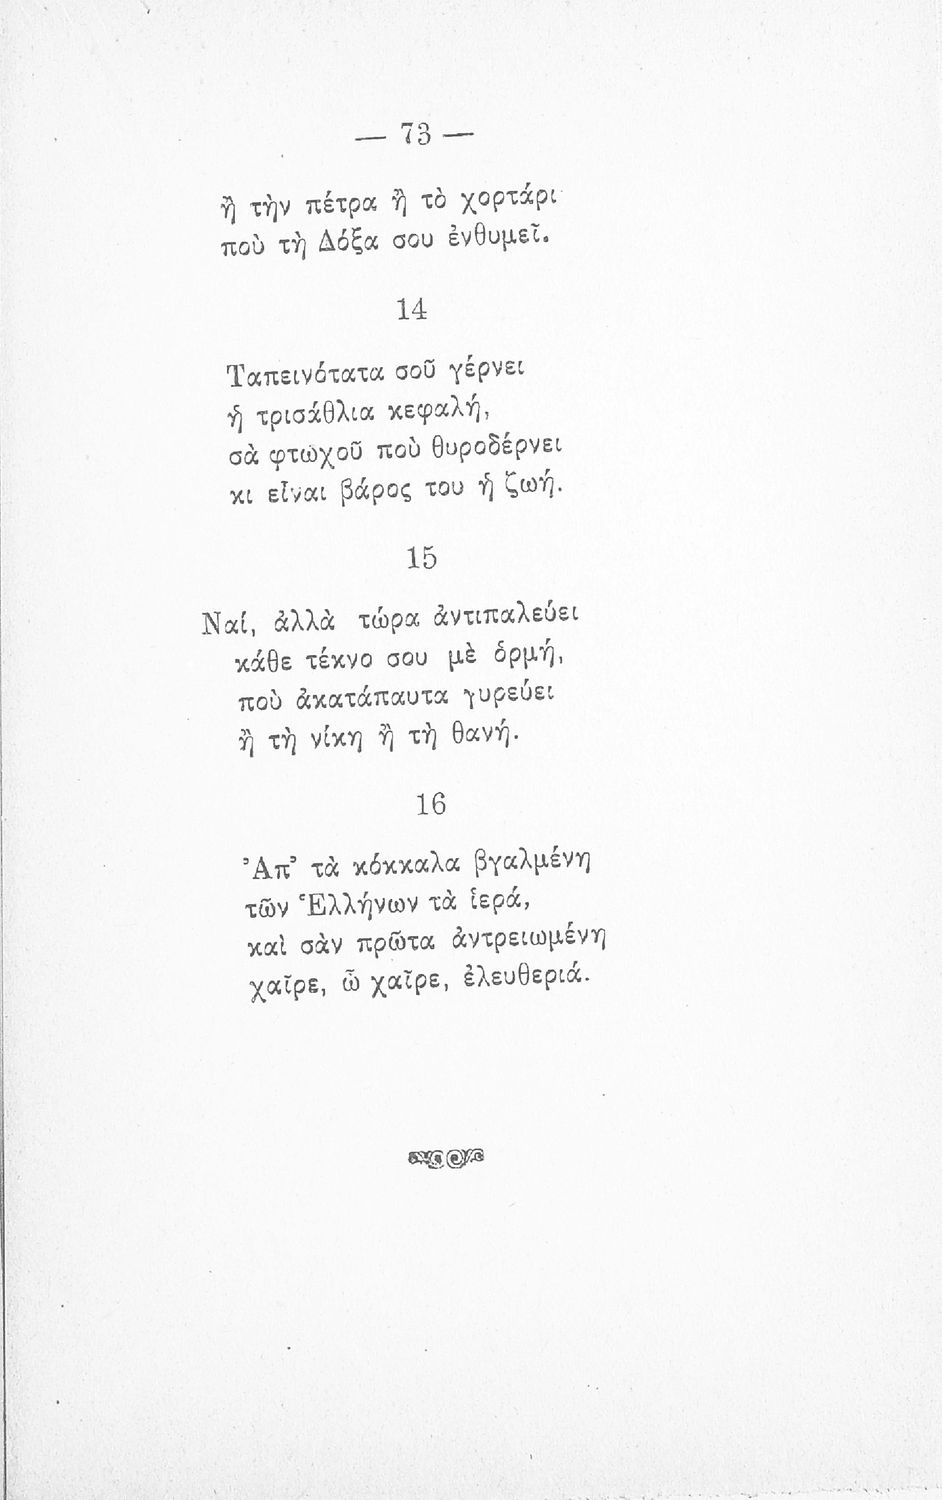 — 73 —
ἢ τὴν πέτρα ἢ τὸ χορτάρι
ποὺ τὴ Δόξα σου ἐνθυμεῖ.
14
Ταπεινότατα σοῦ γέρνει
ἡ τρισάθλια κεφαλή,
σὰ φτωχοῦ ποὺ θυροδέρνει
κι εἶναι βάρος του ἡ ζωή.
15
Ναί, ἀλλὰ τώρα ἀντιπαλεύει
κάθε τέκνο σου μὲ ὁρμή,
ποὺ ἀκατάπαυτα γυρεύει
ἢ τὴ νίκη ἢ τὴ θανή.
16
Ἀπ’ τὰ κόκκαλα βγαλμένη
τῶν Ἑλλήνων τὰ ἱερά,
καὶ σὰν πρῶτα ἀντρειωμένη
χαῖρε, ὦ χαῖρε, ἐλευθεριά.